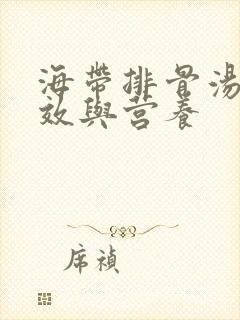 海帶排骨湯
效與營養
席禎